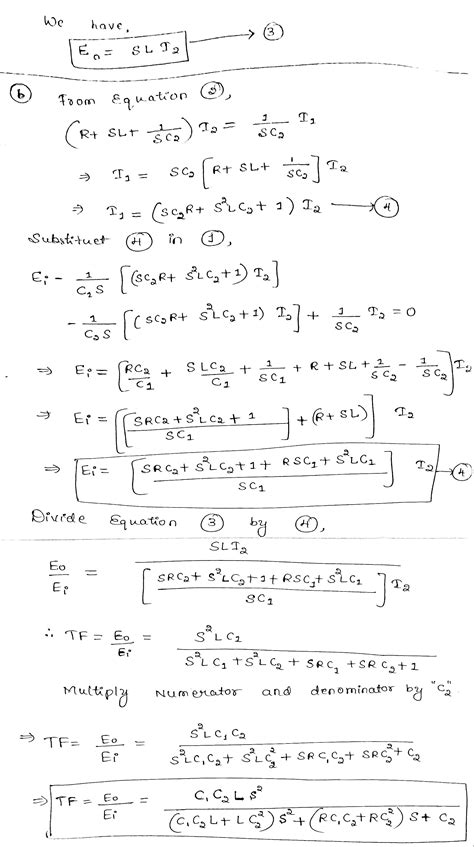 We have,
E₀ = SL I₂ → ③
ⓑ From Equation ②,
(R + SL + 1/SC₂) I₂ = 1/SC₂ I₁
⇒ I₁ = SC₂ [R + SL + 1/SC₂] I₂
⇒ I₁ = (SC₂R + S²LC₂ + 1) I₂ → ④
Substituet ④ in ①,
Eᵢ - 1/C₁S [(SC₂R + S²LC₂ + 1) I₂]
- 1/C₂S [(SC₂R + S²LC₂ + 1) I₂] + 1/SC₂ I₂ = 0
⇒ Eᵢ = [RC₂/C₁ + SLC₂/C₁ + 1/SC₁ + R + SL + 1/SC₂ - 1/SC₂] I₂
⇒ Eᵢ = [[SRC₂ + S²LC₂ + 1 / SC₁] + (R + SL)] I₂
⇒ Eᵢ = [SRC₂ + S²LC₂ + 1 + RSC₁ + S²LC₁ / SC₁] I₂ → ④
Divide Equation ③ by ④,
E₀/Eᵢ = SLI₂ / [SRC₂ + S²LC₂ + 1 + RSC₁ + S²LC₁ / SC₁] I₂
∴ TF = E₀/Eᵢ = S²LC₁ / S²LC₁ + S²LC₂ + SRC₁ + SRC₂ + 1
Multiply Numerator and denominator by "C₂"
⇒ TF = E₀/Eᵢ = S²LC₁C₂ / S²LC₁C₂ + S²LC₂² + SRC₁C₂ + SRC₂² + C₂
⇒ TF = E₀/Eᵢ = C₁C₂LS² / (C₁C₂L + LC₂²)S² + (RC₁C₂ + RC₂²)S + C₂